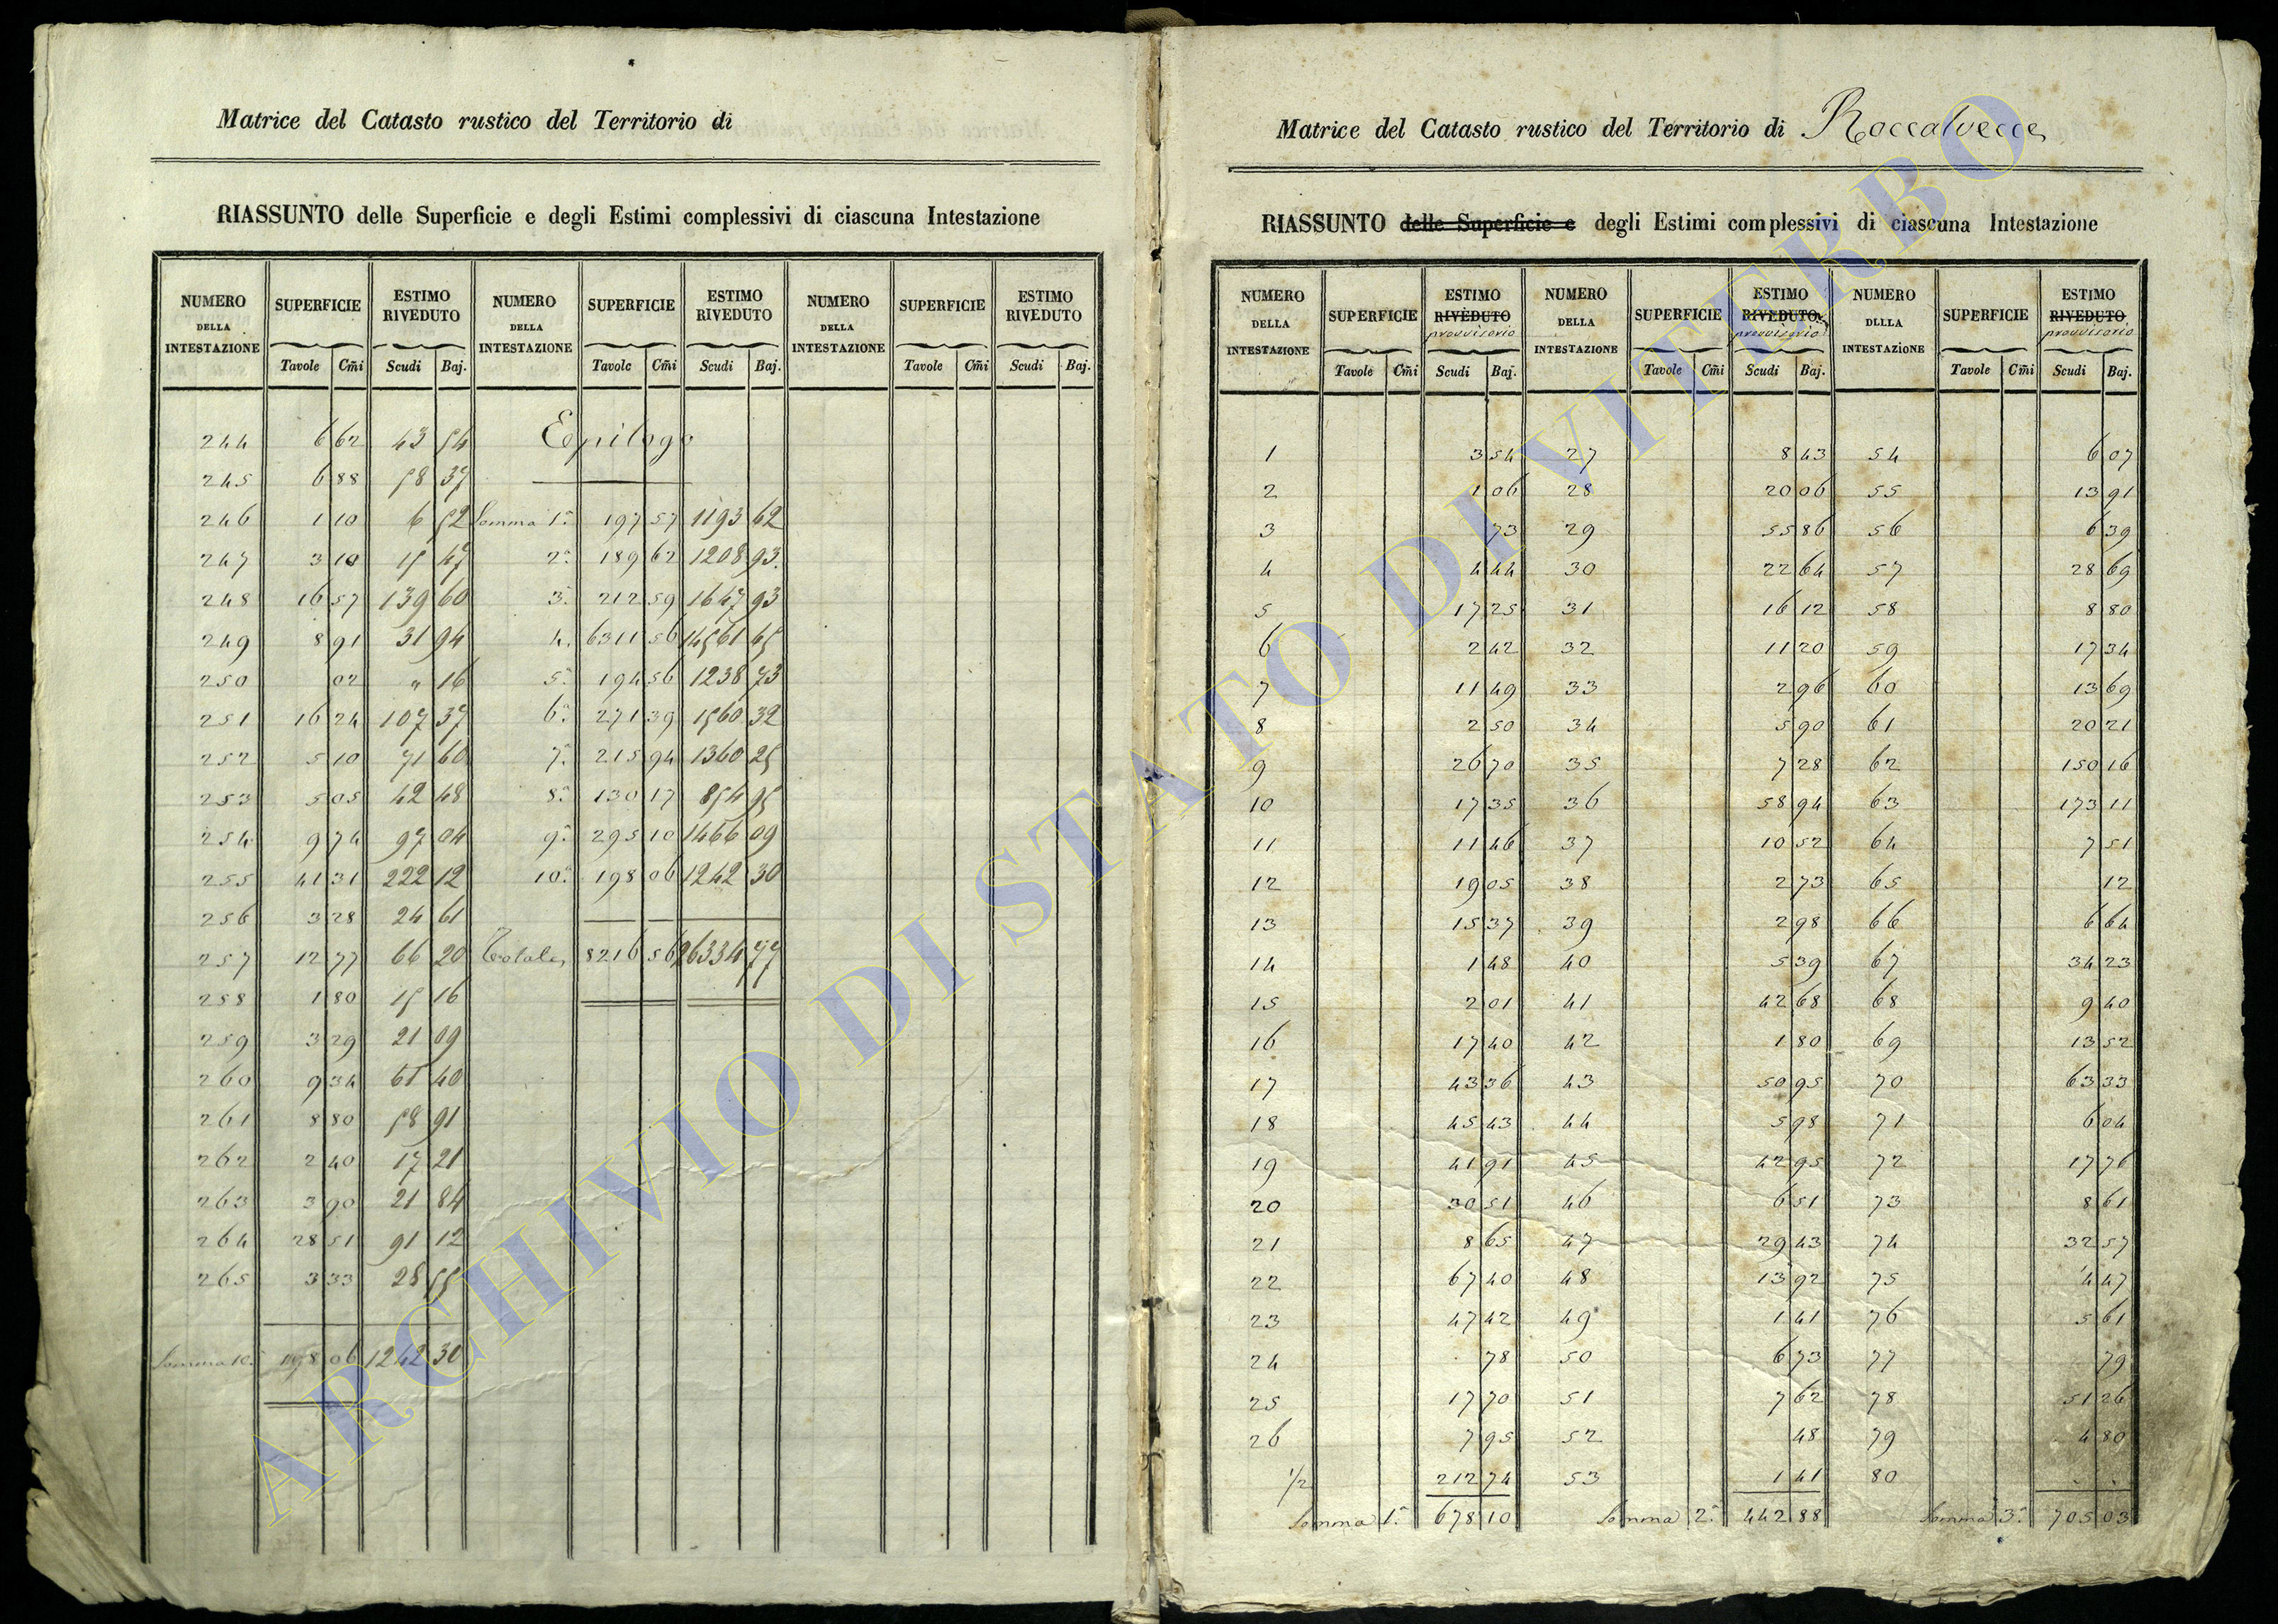 Matrice del Catasto rustico del Territorio di
RIASSUNTO delle Superficie e degli Estimi complessivi di ciascuna Intestazione
NUMERO DELLA INTESTAZIONE SUPERFICIE ESTIMO RIVEDUTO NUMERO DELLA INTESTAZIONE SUPERFICIE ESTIMO RIVEDUTO NUMERO DELLA INTESTAZIONE SUPERFICIE ESTIMO RIVEDUTO
Tavole Cm̃i Scudi Baj. Tavole Cm̃i Scudi Baj. Tavole Cm̃i Scudi Baj.
244 6 62 43 54 Epilogo
245 6 88 58 37
246 1 10 6 52 Somma 1ª 197 57 1193 62
247 3 10 15 47 2ª 189 62 1208 93
248 16 57 139 60 3ª 212 59 1647 93
249 8 91 31 94 4. 6311 56 14561 45
250 02 " 16 5ª 194 56 1238 73
251 16 24 107 37 6ª 271 39 1560 32
252 5 10 71 60 7ª 215 94 1360 25
253 5 05 42 48 8ª 130 17 854 95
254 9 74 97 04 9ª 295 10 1466 09
255 41 31 222 12 10ª 198 06 1242 30
256 3 28 24 61
257 12 77 66 20 Totale 8216 56 26334 77
258 1 80 15 16
259 3 29 21 09
260 9 34 61 40
261 8 80 58 91
262 2 40 17 21
263 3 90 21 84
264 28 51 91 12
265 3 33 28 55
Somma 10ª 198 06 1242 30
Matrice del Catasto rustico del Territorio di Roccalvecce
RIASSUNTO delle Superficie e degli Estimi complessivi di ciascuna Intestazione
NUMERO DELLA INTESTAZIONE SUPERFICIE ESTIMO RIVEDUTO provvisorio NUMERO DELLA INTESTAZIONE SUPERFICIE ESTIMO RIVEDUTO provvisorio NUMERO DLLLA INTESTAZIONE SUPERFICIE ESTIMO RIVEDUTO provvisorio
Tavole Cm̃i Scudi Baj. Tavole Cm̃i Scudi Baj. Tavole Cm̃i Scudi Baj.
1 3 54 27 8 43 54 6 07
2 1 06 28 20 06 55 13 91
3 73 29 55 86 56 6 39
4 4 44 30 22 64 57 28 69
5 17 25 31 16 12 58 8 80
6 2 42 32 11 20 59 17 34
7 11 49 33 2 96 60 13 69
8 2 50 34 5 90 61 20 21
9 26 70 35 7 28 62 150 16
10 17 35 36 58 94 63 173 11
11 11 46 37 10 52 64 7 51
12 19 05 38 2 73 65 12
13 15 37 39 2 98 66 6 64
14 1 48 40 5 39 67 34 23
15 2 01 41 42 68 68 9 40
16 17 40 42 1 80 69 13 52
17 43 36 43 50 95 70 63 33
18 45 43 44 5 98 71 6 04
19 41 91 45 42 95 72 17 76
20 30 51 46 6 51 73 8 61
21 8 65 47 29 43 74 32 57
22 67 40 48 13 92 75 4 47
23 47 42 49 1 41 76 5 61
24 78 50 6 73 77 79
25 17 70 51 7 62 78 51 26
26 7 95 52 48 79 4 80
1/2 212 74 53 1 41 80 - -
Somma 1ª 678 10 Somma 2ª 442 88 Somma 3ª 705 03
ARCHIVIO DI STATO DI VITERBO